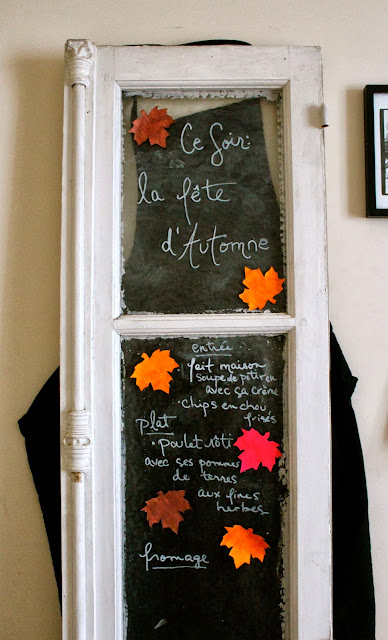 Ce Soir:
la fête
d'Automne
entrée:
fait maison
soupe de potiron
avec sa crème
· chips en chou
frisés
plat
· poulet rôti
avec ses pommes
de terres
aux fines
herbes
fromage